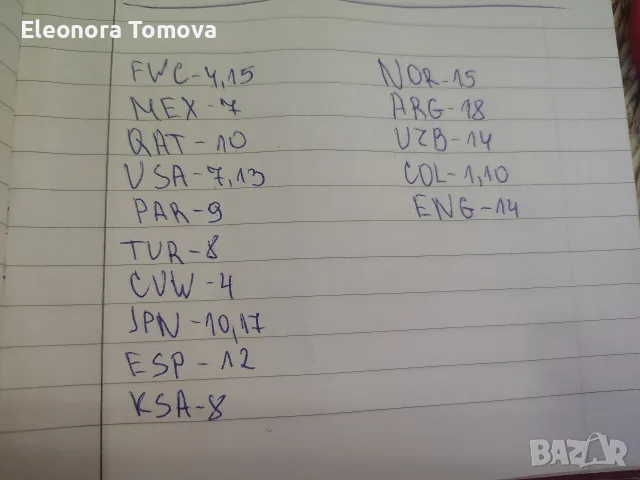 Eleonora Tomova
FWC-4,15
MEX-7
QAT-10
USA-7,13
PAR-9
TUR-8
CUW-4
JPN-10,17
ESP-12
KSA-8
NOR-15
ARG-18
UZB-14
COL-1,10
ENG-14
BAZAR